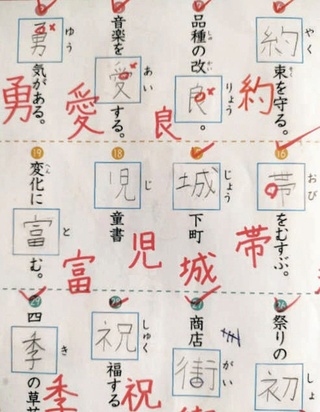 やく
約束を守る。
約
しゅ かい りょう
品種の改良。
良
あい
音楽を愛する。
愛
ゆう
勇気がある。
勇
16
おび
帯をむすぶ。
帯
じょう
城下町
城
18
じ
児童書
児
19
へん と
変化に富む。
富
しょ
祭りの初
27
がい
商店街
28
しゅく
祝福する
祝
29
き
四季の草
季